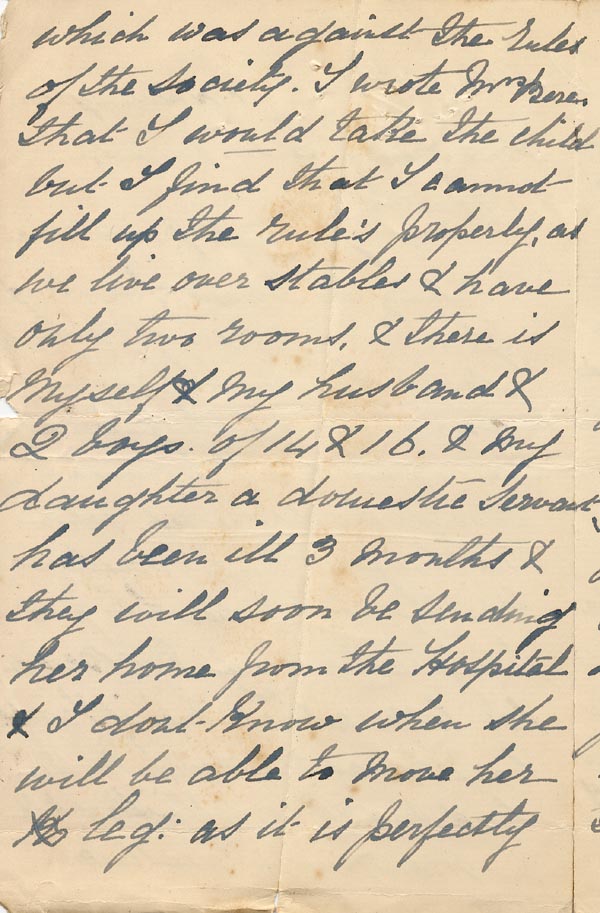 which was against the rules
of the society. I wrote Mrs
that I would take the child
but I find that I cannot
fill up the rule's properly, as
we live over stables & have
only two rooms, & there is
myself & my husband &
2 boys. of 14 & 16. & my
daughter a domestic servant
has been ill 3 months &
they will soon be sending
her home from the Hospital
& I dont know when she
will be able to move her
leg: as it is perfectly